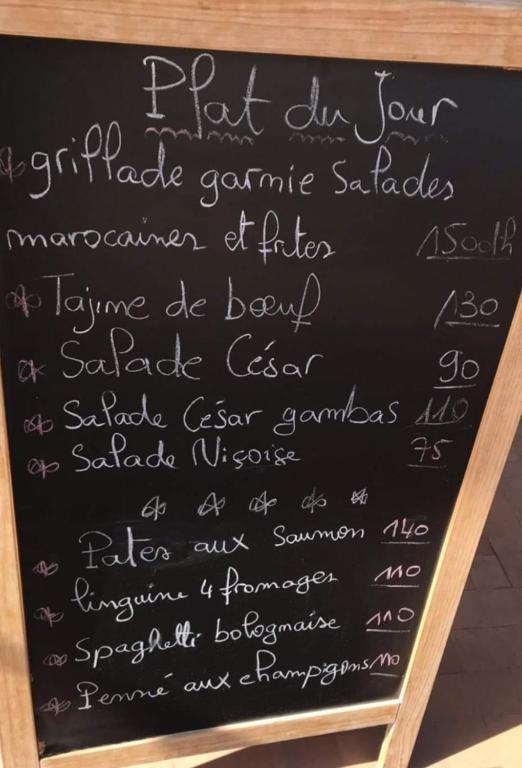 Plat du Jour
grillade garnie Salades
marocaines et frites 150dh
Tajine de bœuf 130
Salade César 90
Salade César gambas 110
Salade Niçoise 75
Pates aux Saumon 140
linguine 4 fromages 110
Spaghetti bolognaise 110
Penné aux champigons 110